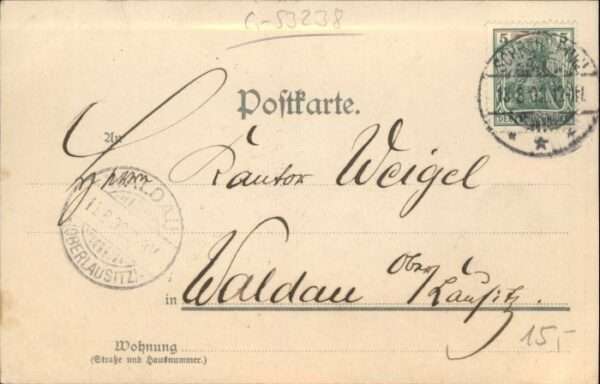 G-53238
5 5
Postkarte.
An
Herrn Kantor Weigel
WALDAU
(OBERLAUSITZ)
in Waldau Ober Lausitz.
15,-
Wohnung
(Straße und Hausnummer.)